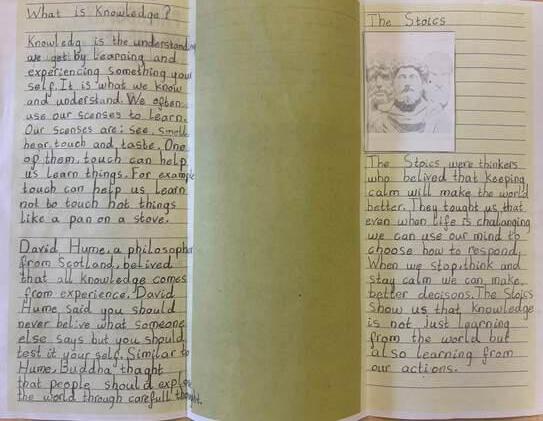 What is Knowledge?
Knowledg is the understandin
we get by learning and
experiencing something your
self. It is what we know
and understand. We often
use our scenses to learn.
Our scenses are: see, smelle
hear, touch and taste. One
of them, touch can help
us learn things. For example
touch can help us learn
not to touch hot things
like a pan on a stove.
David Hume, a philosopher
from Scotland, belived
that all knowledge comes
from experience. David
Hume said you should
never belive what someone
else says but you should
test it your self. Similar to
Hume, Buddha thaght
that people should explore
the world through carefull thought.
The Stoics
The Stoics, were thinkers
who belived that keeping
calm will make the world
better. They tought us that
even when life is challanging
we can use our mind to
choose how to respond.
When we stop, think and
stay calm we can make
better decisons. The Stoics
show us that knowledge
is not just learning
from the world but
also learning from
our actions.